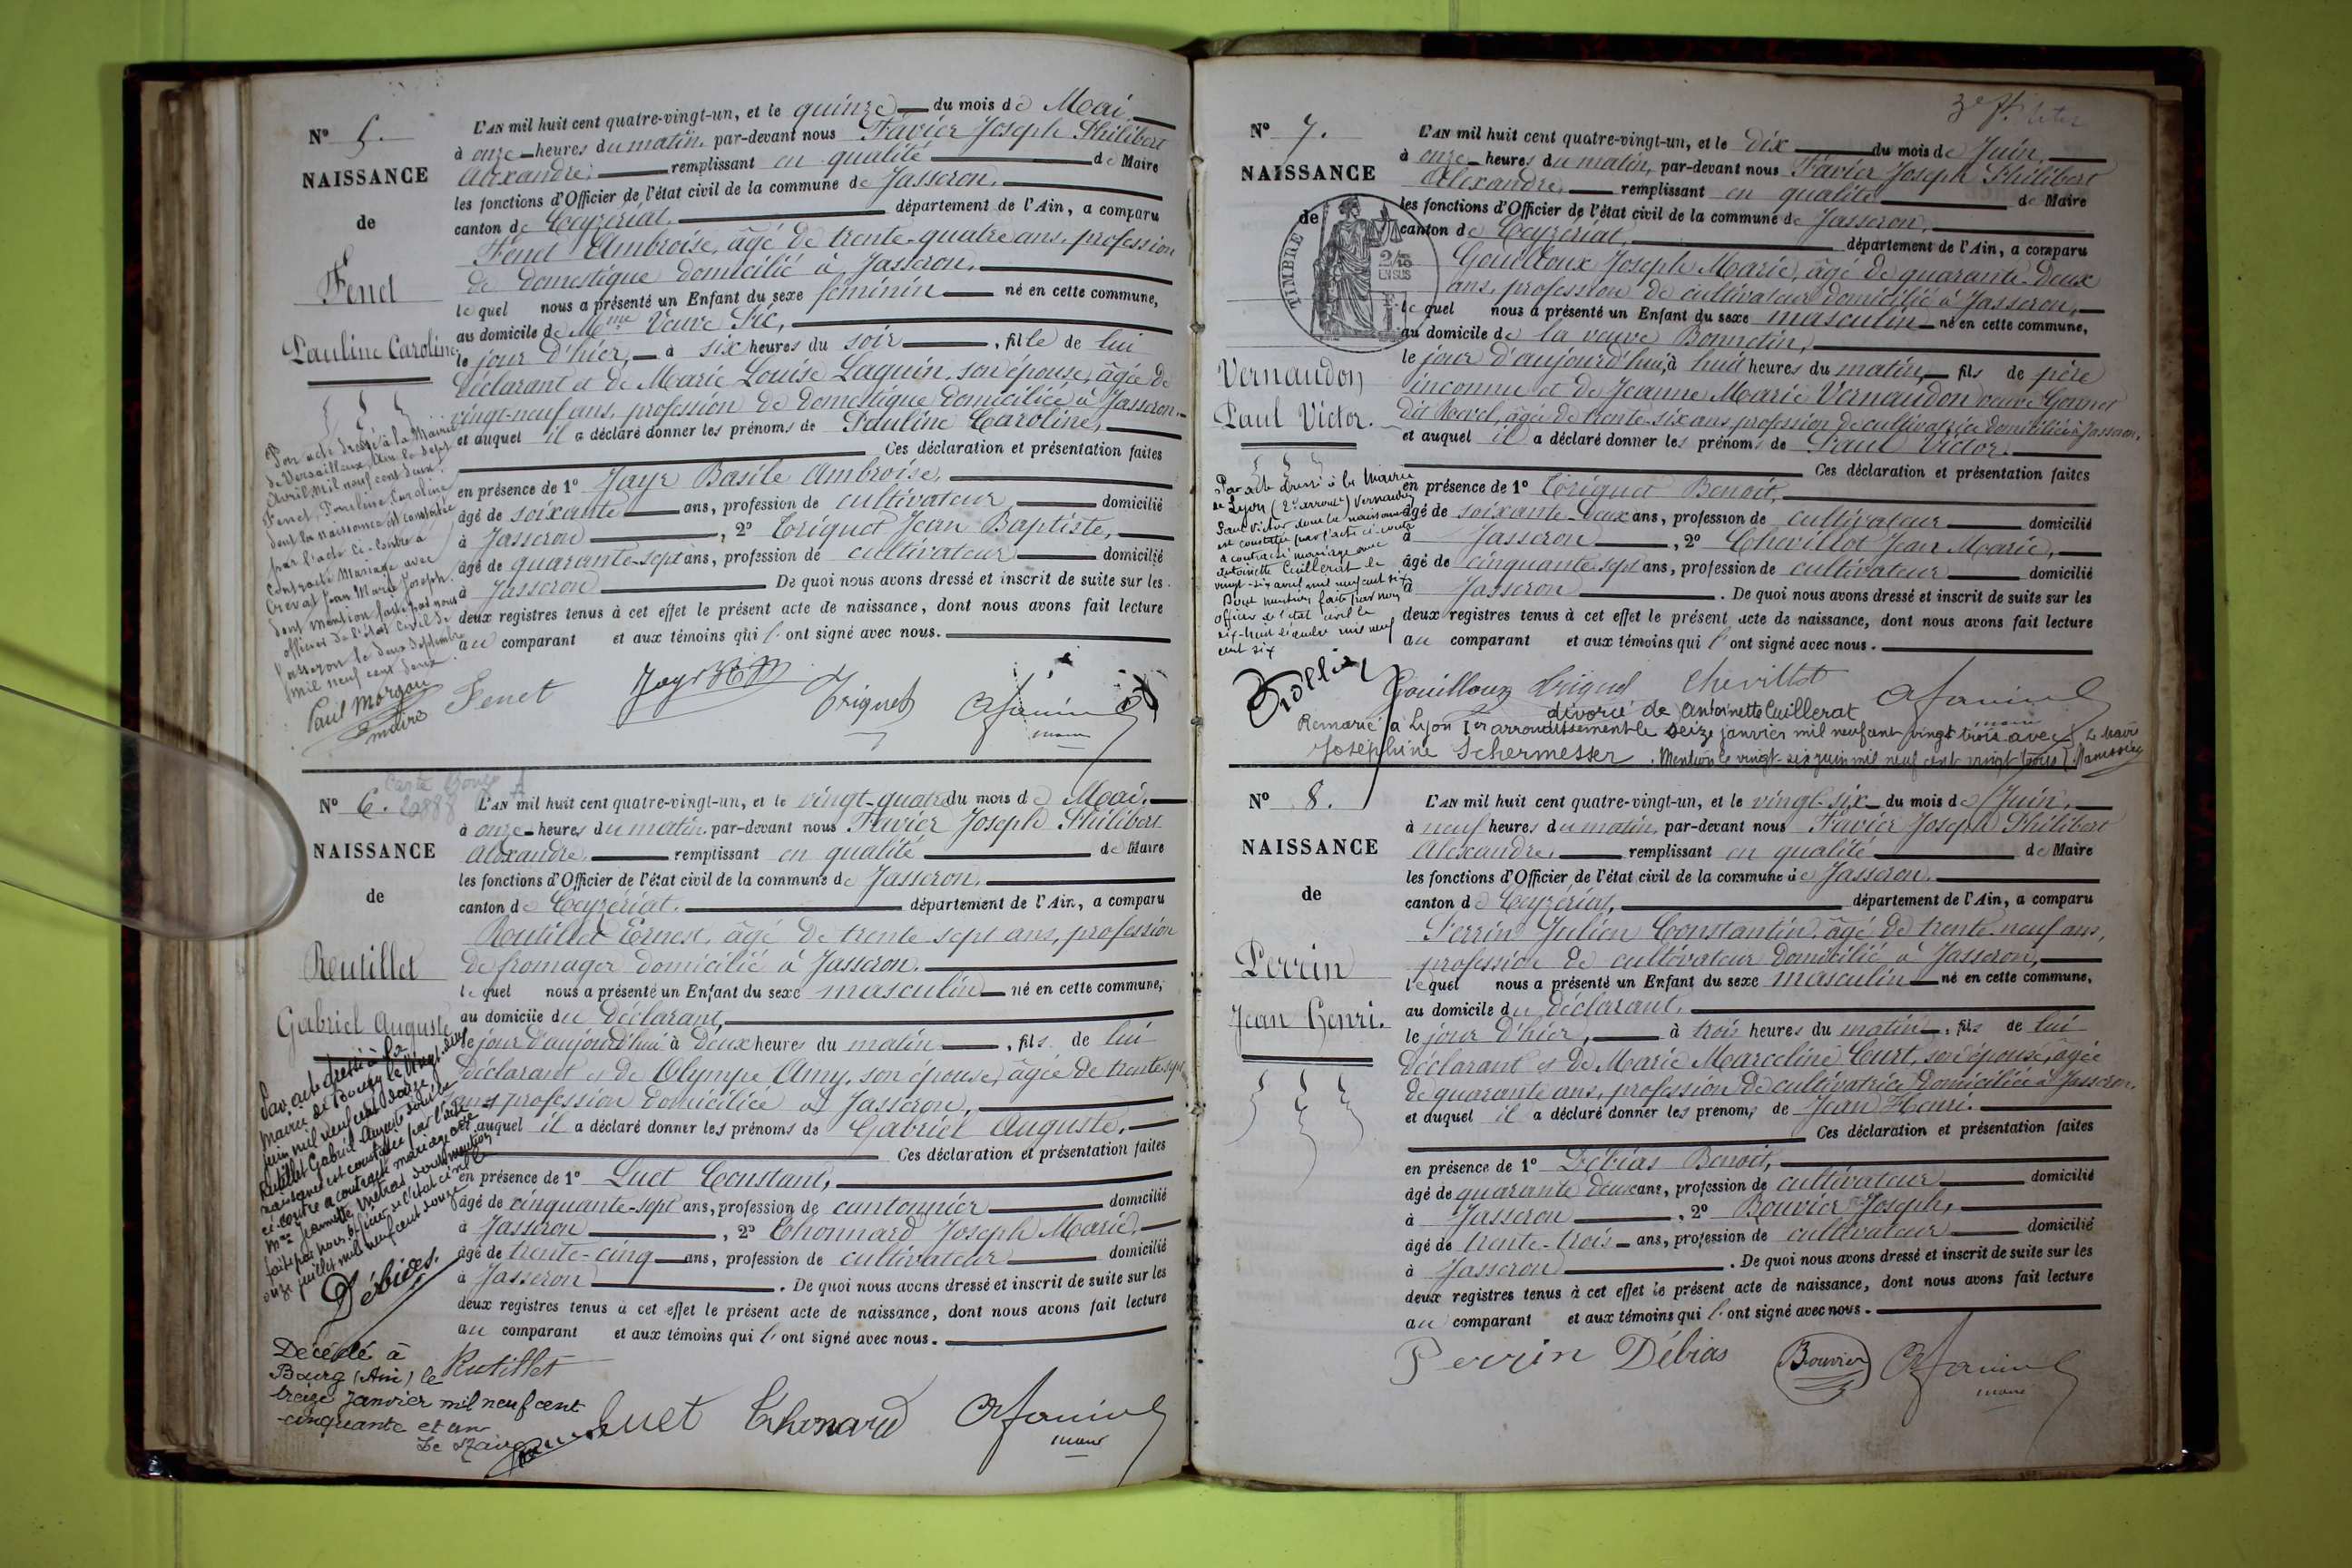 N° 5.
NAISSANCE
de
Fenet
Pauline Caroline
L'AN mil huit cent quatre-vingt-un, et le quinze du mois de Mai
à onze heures du matin, par-devant nous Favier Joseph Philibert
Alexandre, remplissant en qualité de Maire
les fonctions d'Officier de l'état civil de la commune de Jasseron,
canton de Ceyzériat, département de l'Ain, a comparu
Fenet Ambroise, âgé de trente-quatre ans, profession
de domestique domicilié à Jasseron,
lequel nous a présenté un Enfant du sexe féminin né en cette commune,
au domicile de Mme Veuve Pic,
le jour d'hier, à six heures du soir, fille de lui
déclarant et de Marie Louise Laquin, son épouse, âgée de
vingt-neuf ans, profession de domestique domiciliée à Jasseron.
et auquel il a déclaré donner les prénoms de Pauline Caroline,
Ces déclaration et présentation faites
en présence de 1° Jayr Basile Ambroise,
âgé de soixante ans, profession de cultivateur domicilié
à Jasseron, 2° Triquet Jean Baptiste,
âgé de quarante-sept ans, profession de cultivateur domicilié
à Jasseron De quoi nous avons dressé et inscrit de suite sur les
deux registres tenus à cet effet le présent acte de naissance, dont nous avons fait lecture
au comparant et aux témoins qui l'ont signé avec nous.
Par acte dressé à la Mairie
de Versailleux, Ain le sept
Avril mil neuf cent deux.
Fenet, Pauline Caroline
dont la naissance est constatée
par l'acte ci-contre a
contracté Mariage avec
Crevat Jean Marie Joseph.
dont mention faite par nous
officier de l'état civil de
Jasseron le deux Septembre
mil neuf cent deux.
Paul Morgon
maire
Fenet Jayr Triquet
maire
N° 6.
NAISSANCE
de
Reutillet
Gabriel Auguste
L'AN mil huit cent quatre-vingt-un, et le vingt-quatre du mois de Mai,
à onze heures du matin, par-devant nous Favier Joseph Philibert
Alexandre, remplissant en qualité de Maire
les fonctions d'Officier de l'état civil de la commune de Jasseron,
canton de Ceyzériat, département de l'Ain, a comparu
Rutillet Ernest, âgé de trente sept ans, profession
de fromager domicilié à Jasseron.
lequel nous a présenté un Enfant du sexe masculin né en cette commune,
au domicile du déclarant,
le jour d'aujourd'hui à deux heures du matin, fils de lui
déclarant et de Olympe Amy, son épouse, âgée de trente sept
ans profession domiciliée à Jasseron,
et auquel il a déclaré donner les prénoms de Gabriel Auguste.
Ces déclaration et présentation faites
en présence de 1° Luet Constant,
âgé de cinquante-sept ans, profession de cantonnier domicilié
à Jasseron, 2° Thonnard Joseph Marie,
âgé de trente-cinq ans, profession de cultivateur domicilié
à Jasseron. De quoi nous avons dressé et inscrit de suite sur les
deux registres tenus à cet effet le présent acte de naissance, dont nous avons fait lecture
au comparant et aux témoins qui l'ont signé avec nous.
Par acte dressé à la
mairie de Bourg le vingt-deux
juin mil neuf cent douze
Rutillet Gabriel Auguste dont la
naissance est constatée par l'acte
ci-contre a contracté mariage avec
Jeannette Métras dont mention
faite par nous officier de l'état civil le
onze juillet mil neuf cent douze
Débias.
Décédé à
Bourg (Ain) le
treize Janvier mil neuf cent
cinquante et un
Le Maire
Rutillet Luet Thonard
maire
N° 7.
NAISSANCE
de
TIMBRE
2/10
EN SUS
Vernaudon
Paul Victor.
L'AN mil huit cent quatre-vingt-un, et le dix du mois de Juin,
à onze heures du matin, par-devant nous Favier Joseph Philibert
Alexandre, remplissant en qualité de Maire
les fonctions d'Officier de l'état civil de la commune de Jasseron,
canton de Ceyzériat, département de l'Ain, a comparu
Gouilloux Joseph Marie, âgé de quarante-deux
ans, profession de cultivateur domicilié à Jasseron,
lequel nous a présenté un Enfant du sexe masculin né en cette commune,
au domicile de la veuve Bonnetin,
le jour d'aujourd'hui, à huit heures du matin, fils de père
inconnu et de Jeanne Marie Vernaudon veuve Gonnet
dit Revel, âgée de trente-six ans, profession de cultivatrice domiciliée à Jasseron.
et auquel il a déclaré donner les prénoms de Paul Victor.
Ces déclaration et présentation faites
en présence de 1° Triquet Benoit,
âgé de soixante-deux ans, profession de cultivateur domicilié
à Jasseron, 2° Chevillot Jean Marie,
âgé de cinquante-sept ans, profession de cultivateur domicilié
à Jasseron. De quoi nous avons dressé et inscrit de suite sur les
deux registres tenus à cet effet le présent acte de naissance, dont nous avons fait lecture
au comparant et aux témoins qui l'ont signé avec nous.
Par acte dressé à la Mairie
de Lyon (2e arrond.t) Vernaudon
Paul Victor dont la naissance
est constatée par l'acte ci-contre
a contracté mariage avec
Antoinette Cuillerat le
vingt-six avril mil neuf cent six
Dont mention faite par nous
officier de l'état civil le
dix-huit décembre mil neuf
cent six
Gouilloux Triquet Chevillot
divorcé de Antoinette Cuillerat
Remarié à Lyon 1er arrondissement le seize janvier mil neuf cent vingt trois avec
Joséphine Schermesser. Mention le vingt-six juin mil neuf cent vingt trois Le Maire
N° 8.
NAISSANCE
de
Perrin
Jean Henri.
L'AN mil huit cent quatre-vingt-un, et le vingt-six du mois de Juin,
à neuf heures du matin, par-devant nous Favier Joseph Philibert
Alexandre, remplissant en qualité de Maire
les fonctions d'Officier de l'état civil de la commune de Jasseron.
canton de Ceyzériat, département de l'Ain, a comparu
Perrin Julien Constantin, âgé de trente-neuf ans,
profession de cultivateur domicilié à Jasseron,
lequel nous a présenté un Enfant du sexe masculin né en cette commune,
au domicile du déclarant,
le jour d'hier, à trois heures du matin, fils de lui
déclarant et de Marie Marceline Curt, son épouse, âgée
de quarante ans, profession de cultivatrice domiciliée à Jasseron.
et auquel il a déclaré donner les prénoms de Jean Henri.
Ces déclaration et présentation faites
en présence de 1° Débias Benoit,
âgé de quarante deux ans, profession de cultivateur domicilié
à Jasseron, 2° Bouvier Joseph,
âgé de trente-trois ans, profession de cultivateur domicilié
à Jasseron. De quoi nous avons dressé et inscrit de suite sur les
deux registres tenus à cet effet le présent acte de naissance, dont nous avons fait lecture
au comparant et aux témoins qui l'ont signé avec nous.
Perrin Débias Bouvier
maire